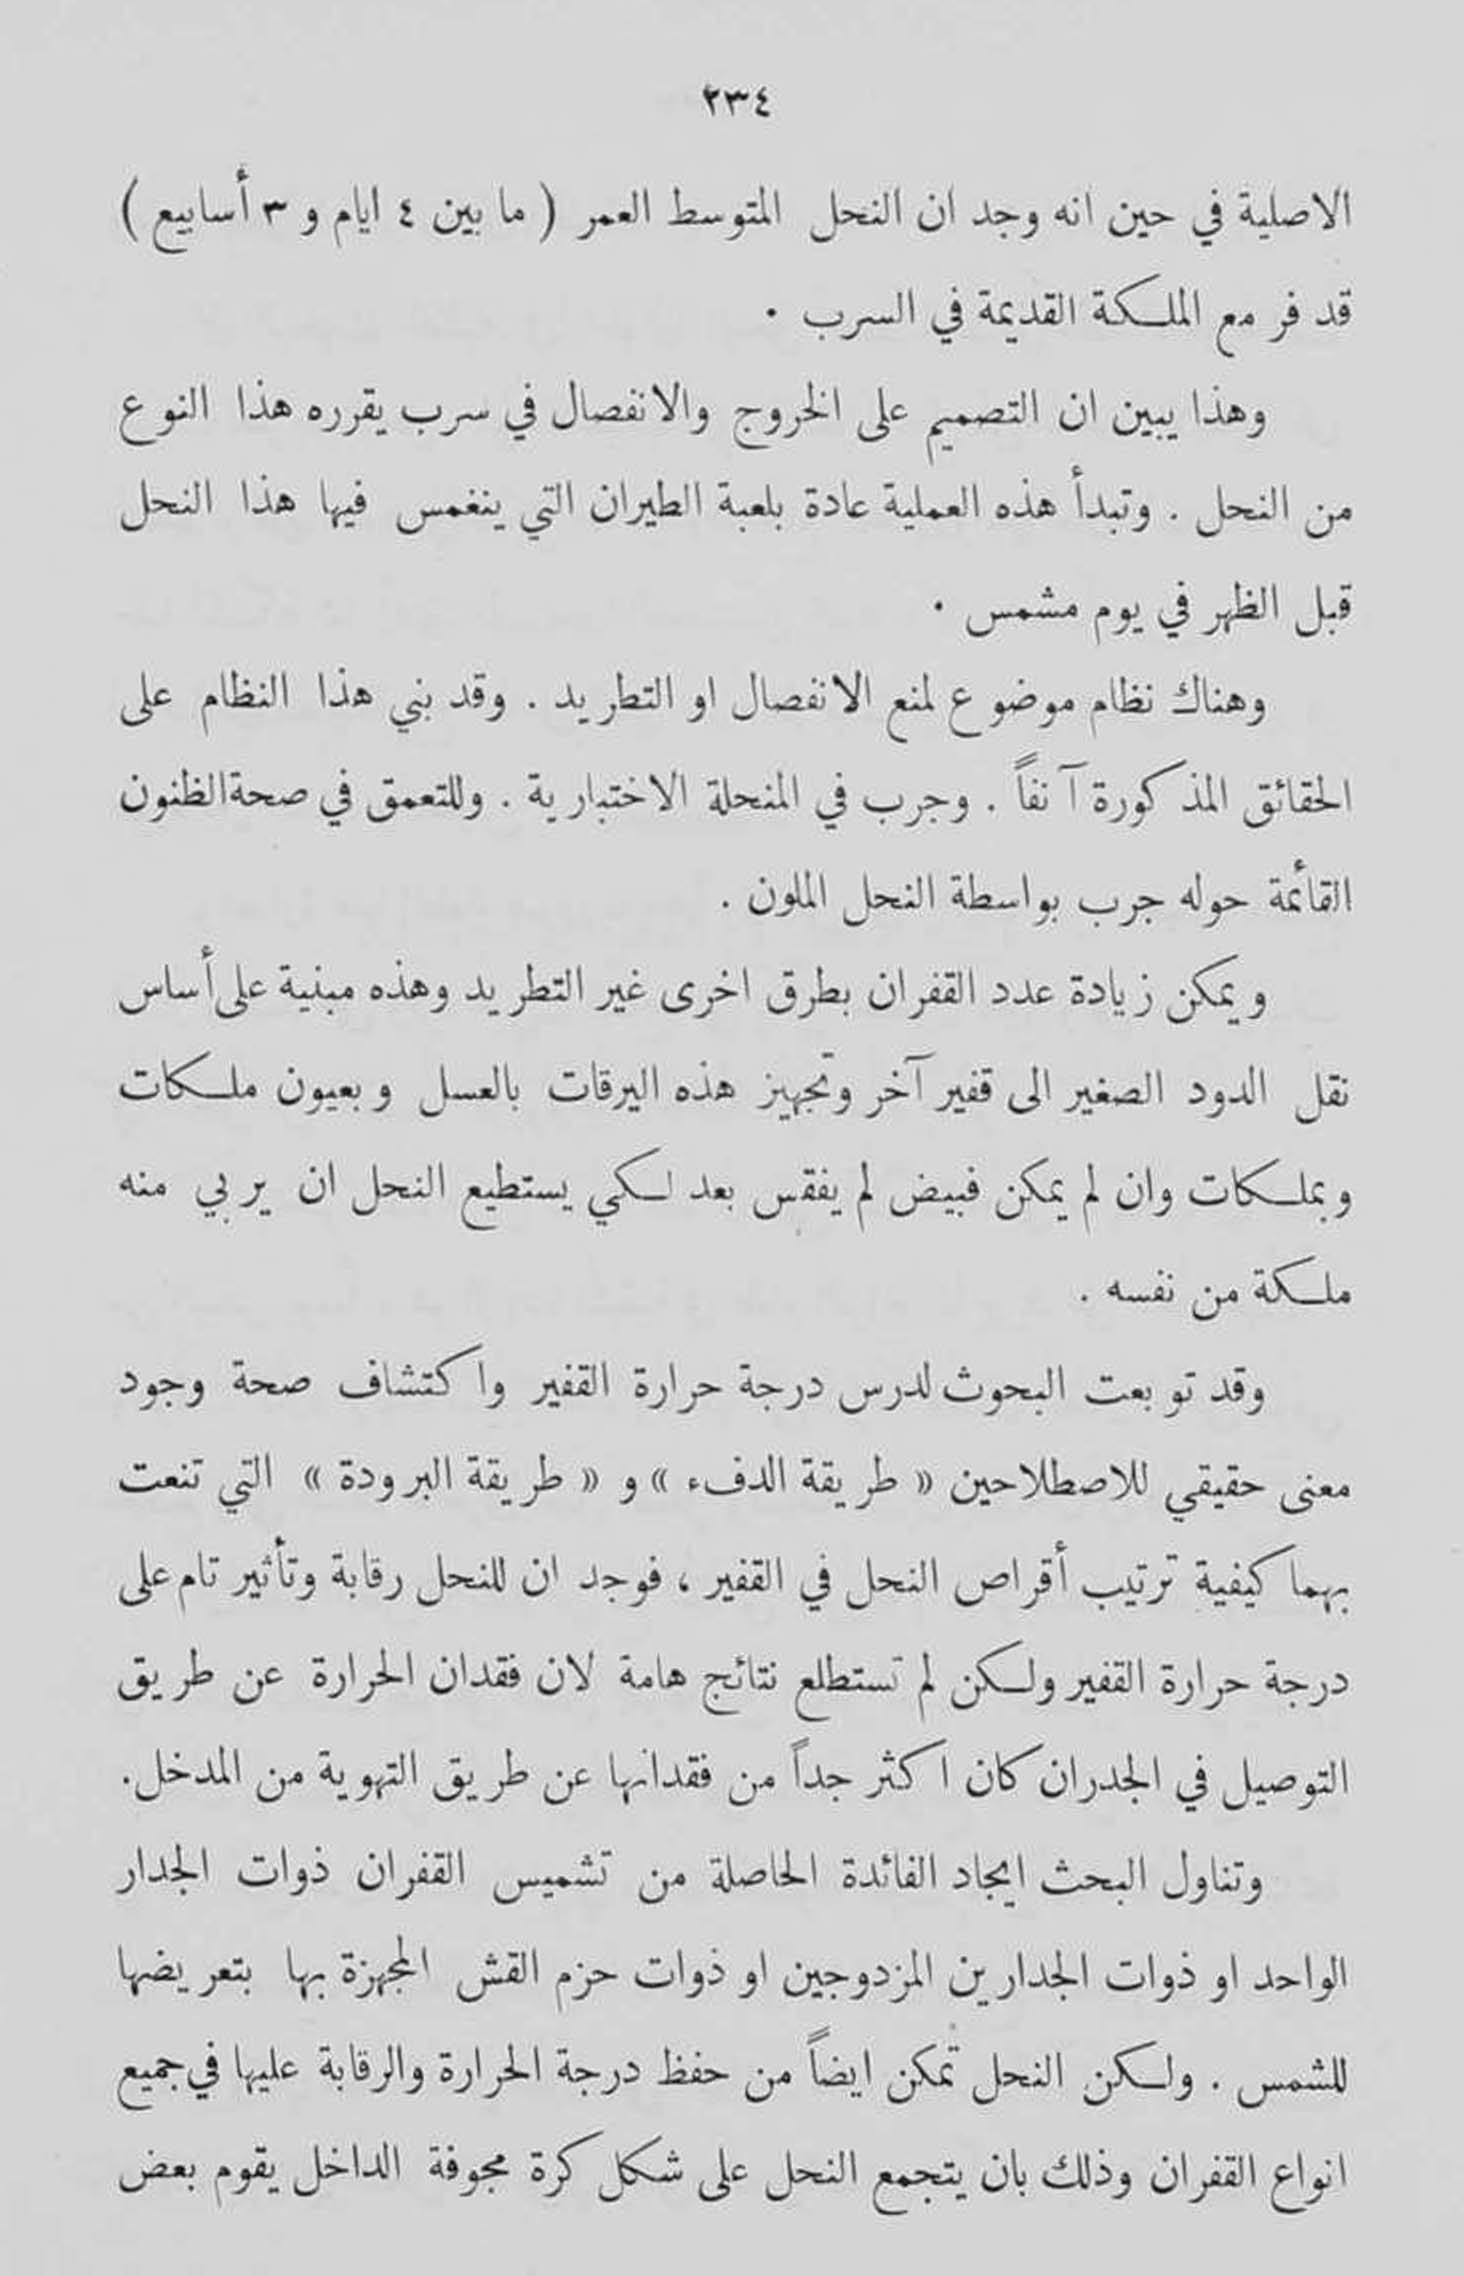 ٢٣٤
الاصلية في حين انه وجد ان النحل المتوسط العمر ( ما بين ٤ ايام و ٣ أسابيع )
قد فر مع الملكة القديمة في السرب ٠
وهذا يبين ان التصميم على الخروج والانفصال في سرب يقرره هذا النوع
من النحل . وتبدأ هذه العملية عادة بلعبة الطيران التي ينغمس فيها هذا النحل
قبل الظهر في يوم مشمس ٠
وهناك نظام موضوع لمنع الانفصال او التطريد . وقد بني هذا النظام على
الحقائق المذكورة آنفاً . وجرب في المنحلة الاختبارية . وللتعمق في صحة الظنون
القائمة حوله جرب بواسطة النحل الملون .
ويمكن زيادة عدد القفران بطرق اخرى غير التطريد وهذه مبنية على أساس
نقل الدود الصغير الى قفير آخر وتجهيز هذه اليرقات بالعسل وبعيون ملكات
وبملكات وان لم يمكن فبيض لم يفقس بعد لكي يستطيع النحل ان يربي منه
ملكة من نفسه .
وقد توبعت البحوث لدرس درجة حرارة القفير واكتشاف صحة وجود
معنى حقيقي للاصطلاحين « طريقة الدفء » و « طريقة البرودة » التي تنعت
بهما كيفية ترتيب أقراص النحل في القفير ، فوجد ان للنحل رقابة وتأثير تام على
درجة حرارة القفير ولكن لم تستطلع نتائج هامة لان فقدان الحرارة عن طريق
التوصيل في الجدران كان اكثر جداً من فقدانها عن طريق التهوية من المدخل.
وتناول البحث ايجاد الفائدة الحاصلة من تشميس القفران ذوات الجدار
الواحد او ذوات الجدارين المزدوجين او ذوات حزم القش المجهزة بها بتعريضها
للشمس . ولكن النحل تمكن ايضاً من حفظ درجة الحرارة والرقابة عليها في جميع
انواع القفران وذلك بان يتجمع النحل على شكل كرة مجوفة الداخل يقوم بعض